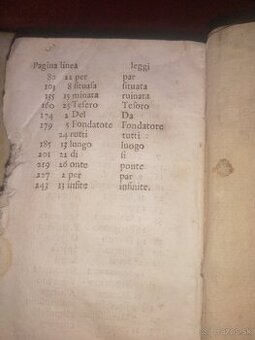 Pagina linea leggi
80 22 per par
103 8 situasa situata
135 15 minata ruinata
160 25 Tesero Tesoro
174 2 Del Da
179 5 Fondatote Fondatore
24 rutti tutti
185 13 luogo luogo
201 21 di si
219 26 onte ponte
227 2 per par
243 13 infite infinite.